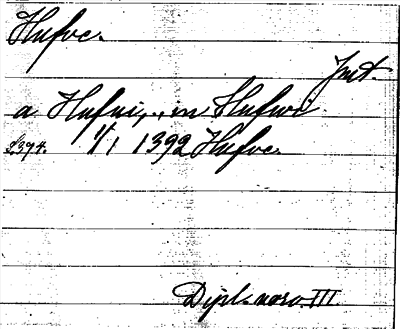 Hufve.
Jmt.
a Hufui, .. m Hufwi
S.394. 1/1 1392 Hufve.
Dipl. norv. III.